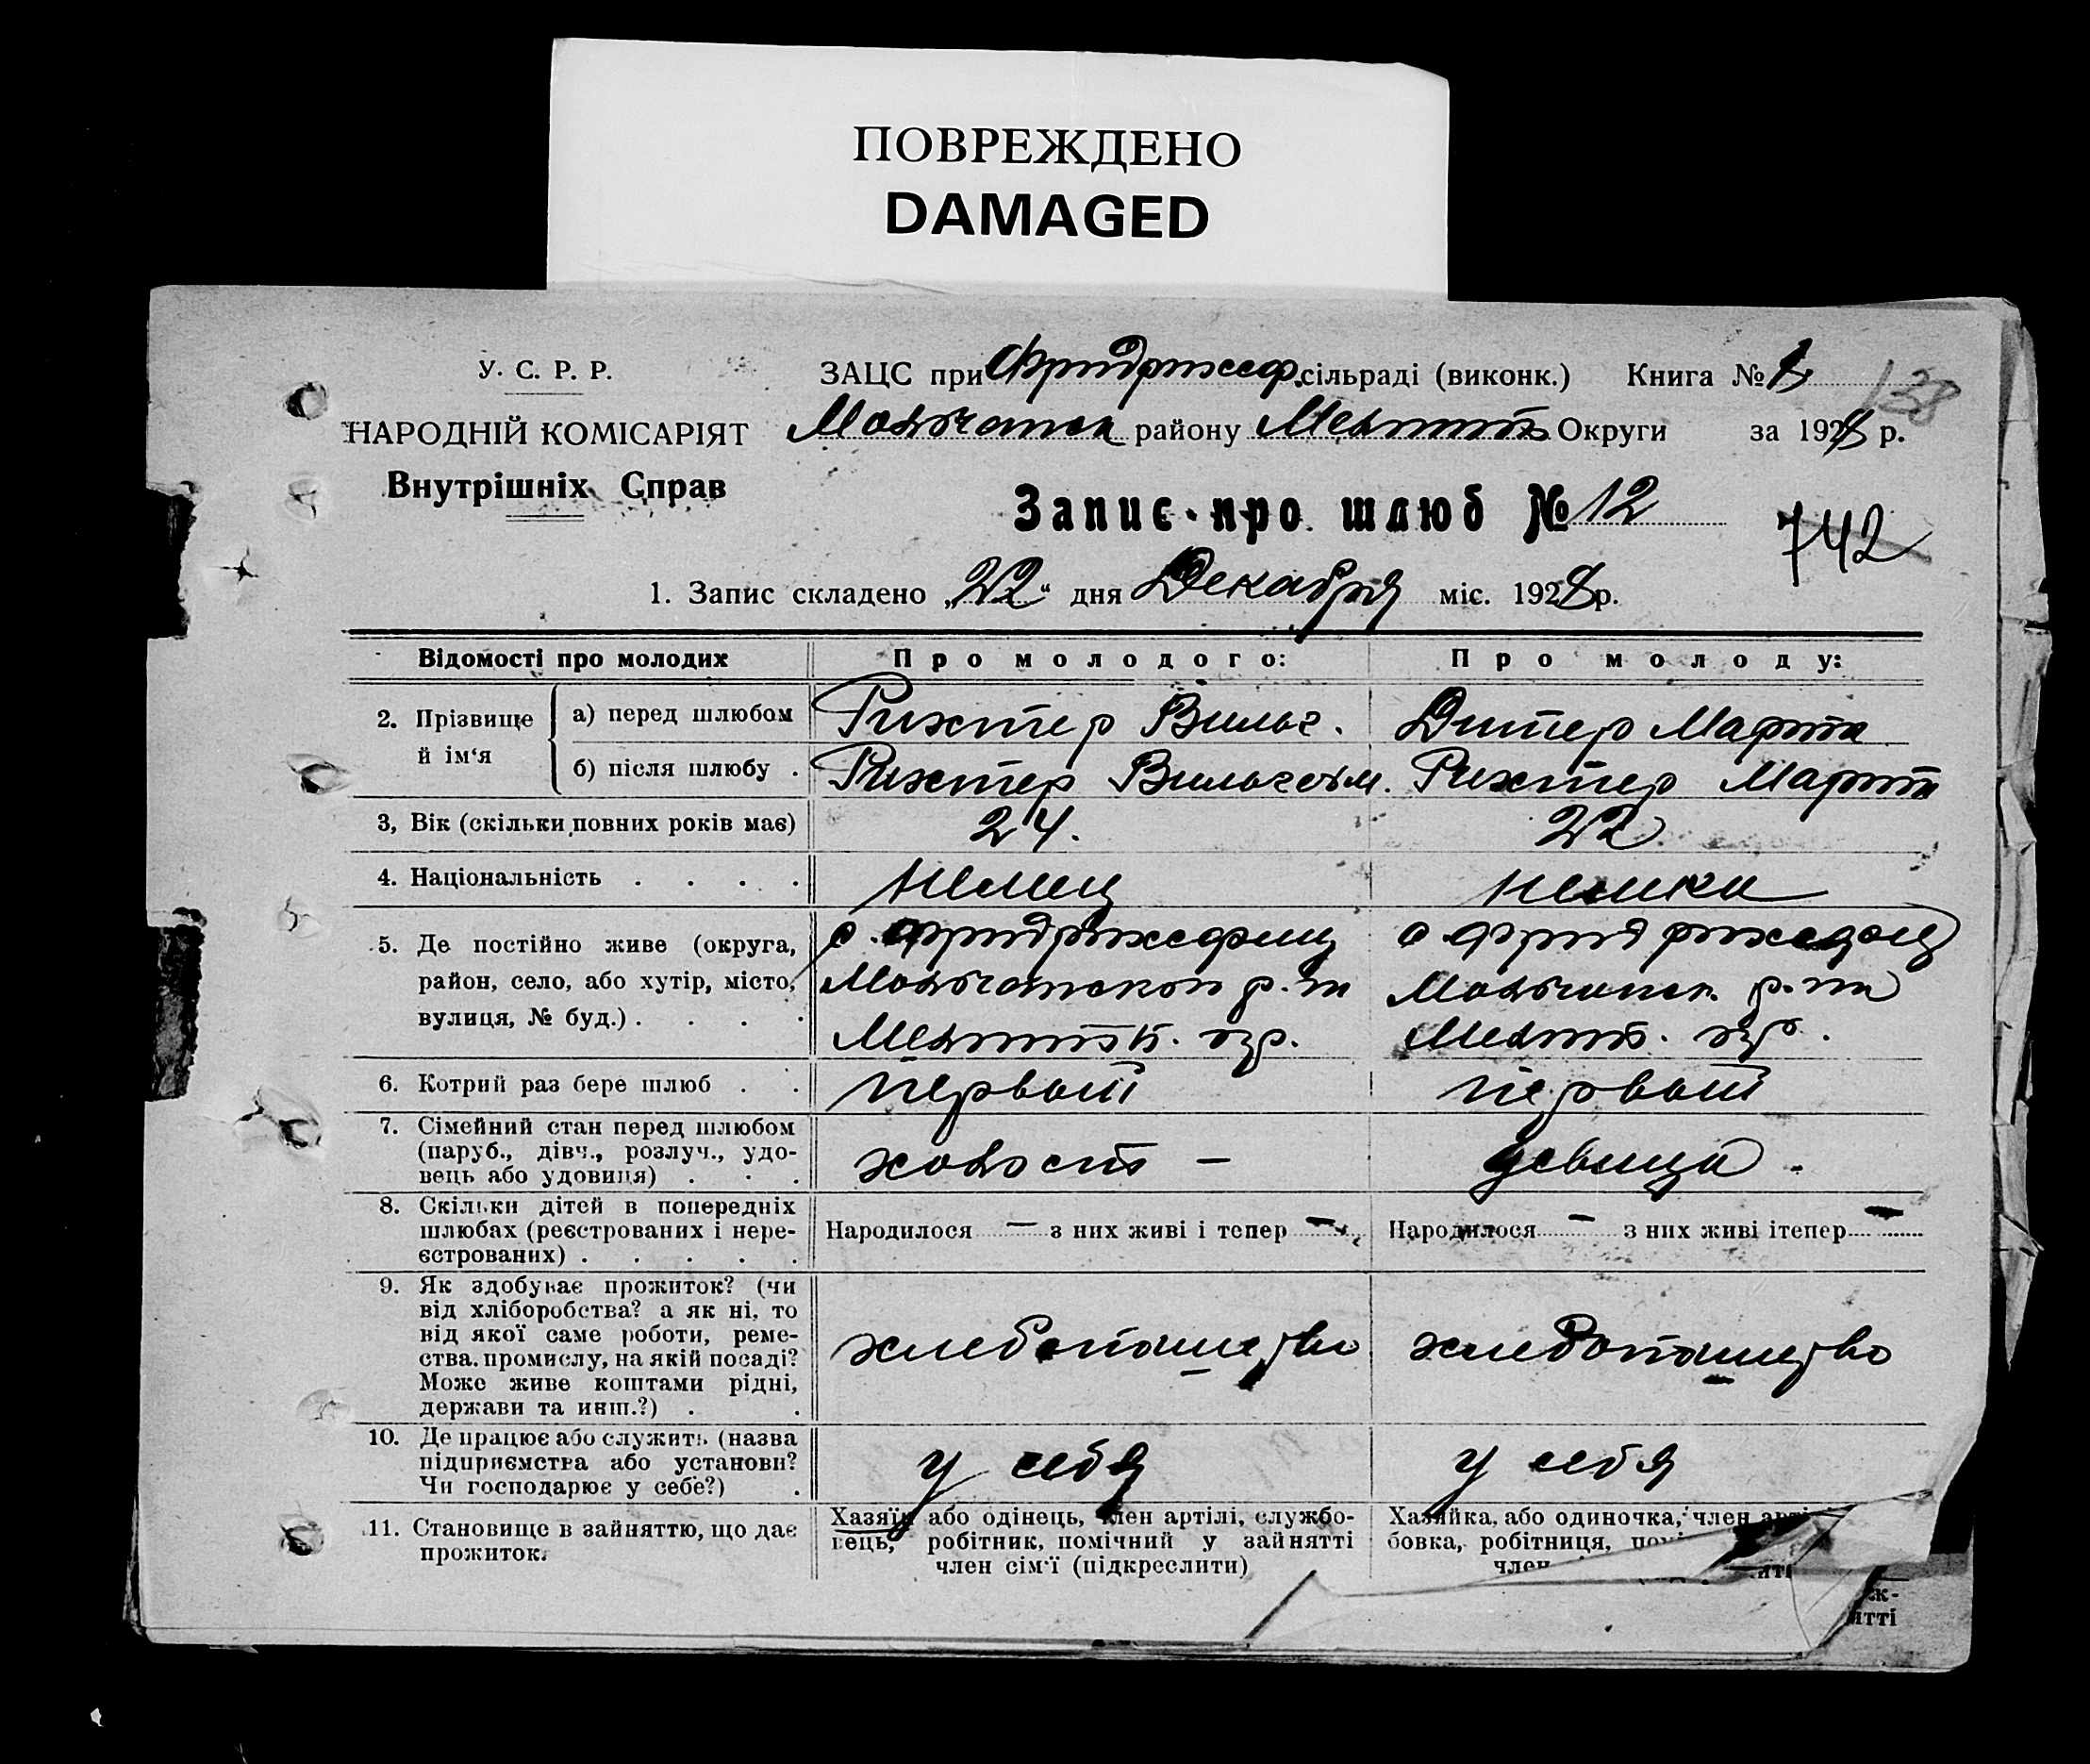 ПОВРЕЖДЕНО
DAMAGED
У. С. Р. Р.
НАРОДНІЙ КОМІСАРІЯТ
Внутрішніх Справ
ЗАЦС при сільраді (виконк.) Книга № 1
138
району Округи за 1928 р.
Запис про шлюб № 12
742
1. Запис складено „22“ дня Декабря міс. 1928 р.
Відомості про молодих Про молодого: Про молоду:
2. Прізвище й ім‘я
а) перед шлюбом Рихтер Вильг. Дитер Марта
б) після шлюбу . Рихтер Вильгельм. Рихтер Марта
3, Вік (скільки повних років має) 24. 22
4. Національність . . . . немец немка
5. Де постійно живе (округа,
район, село, або хутір, місто,
вулиця, № буд.) . . . .
Мелит. окр.
6. Котрий раз бере шлюб . . первый первый
7. Сімейний стан перед шлюбом
(паруб., дівч., розлуч., удо-
вець або удовиця) . . .
холост — девица .
8. Скільки дітей в попередніх
шлюбах (реєстрованих і нере-
єстрованих) . . . . .
Народилося — з них живі і тепер — Народилося — з них живі ітепер —
9. Як здобуває прожиток? (чи
від хліборобства? а як ні, то
від якої саме роботи, реме-
ства. промислу, на якій посаді?
Може живе коштами рідні,
держави та инш.?) . .
хлебопашество хлебопашество
10. Де працює або служить (назва
підприємства або установи?
Чи господарює у себе?) .
у себя у себя
11. Становище в зайняттю, що дає
прожиток.
Хазяїн або одінець, член артілі, службо-
вець, робітник, помічний у зайнятті
член сім‘ї (підкреслити)
Хазяйка, або одиночка, член арті
бовка, робітниця, помі
член